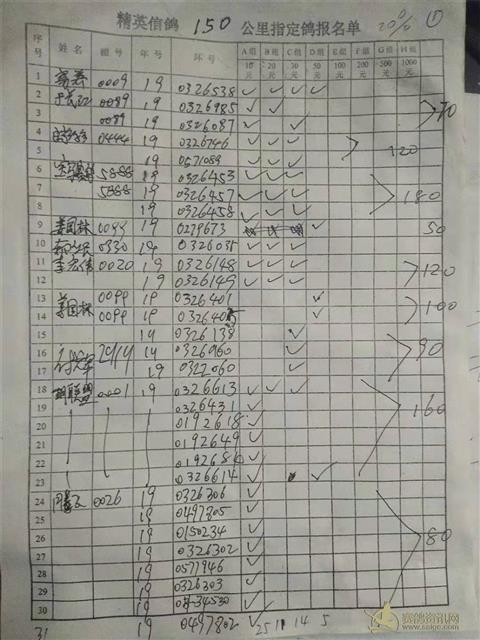 精英信鸽 150 公里指定鸽报名单 20% ①
序号 姓名 棚号 年 环号 A组10元 B组20元 C组30元 D组50元 E组100元 F组200元 G组500元 H组1000元
1 0009 19 0326538 ✓ ✓ ✓ ✓
2 0089 19 0326985 ✓ ✓
3 0089 19 0326087 ✓ ✓ 70
4 0444 19 0326746 ✓ ✓ ✓
5 19 0571089 ✓ ✓ ✓ 120
6 5888 19 0326453 ✓ ✓ ✓
7 5888 19 0326457 ✓ ✓ ✓
8 19 0326458 ✓ ✓ ✓ 180
9 姜国林 0099 19 0279673 ✓ 50
10 0330 19 0326035 ✓ ✓ ✓
11 李宏伟 0020 19 0326148 ✓ ✓ ✓
12 19 0326149 ✓ ✓ ✓ 120
13 姜国林 0099 19 0326401 ✓
14 0099 19 ✓ 100
15 19 0326138 ✓
16 19 0326960 ✓
17 19 0327060 ✓ 90
18 胡联盟 0001 19 0326613 ✓ ✓ ✓
19 0326431 ✓
20 0192618 ✓
21 0192649 ✓
22 ✓
23 0326614 ✓ ✓ 160
24 0026 19 0326306 ✓
25 19 0497805 ✓
26 19 0150234 ✓
27 19 0326302 ✓
28 19 0577946 ✓
29 19 0326303 ✓
30 19 ✓ 80
31 19 0497802 ✓ 25 11 14 5
赛鸽资讯网
www.saige.com